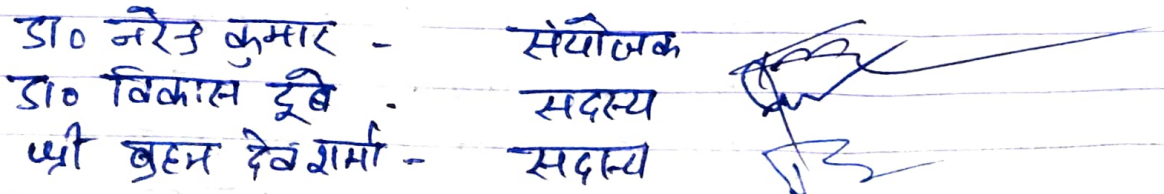 डा० नरेन्द्र कुमार - संयोजक
डा० विकास दूबे - सदस्य
श्री ब्रहम देव शर्मा - सदस्य